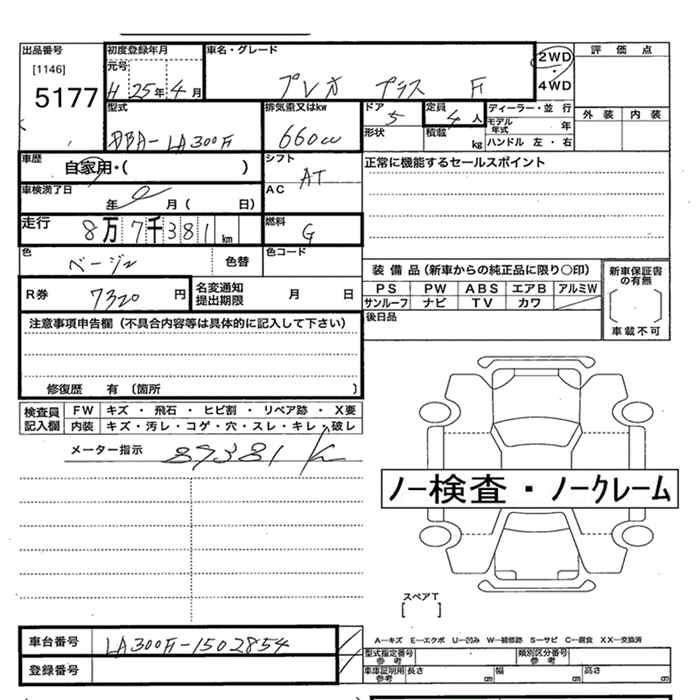 出品番号 [1146] 5177
初度登録年月 元号 H 25年 4月
車名・グレード プレオ プラス F
2WD・4WD
評価点
外装 内装
型式 DBA-LA300F
排気量又はkw 660cc
ドア 5 形状
定員 4人 積載 kg
ディーラー・並行
モデル年式 年
ハンドル 左・右
車歴 自家用・( )
シフト AT
正常に機能するセールスポイント
車検満了日 年 0 月 ( 日)
AC
走行 8万7千381km
燃料 G
色 ベージュ 色替
色コード
R券 7320円
名変通知提出期限 月 日
装備品(新車からの純正品に限り○印)
PS PW ABS エアB アルミW
サンルーフ ナビ TV カワ
後日品
新車保証書の有無
[ ]
車載不可
注意事項申告欄(不具合内容等は具体的に記入して下さい)
修復歴 有 (箇所 )
検査員記入欄
FW キズ・飛石・ヒビ割・リペア跡・X要
内装 キズ・汚レ・コゲ・穴・スレ・キレ・破レ
メーター指示 87381 K
ノー検査・ノークレーム
スペアT
[ ]
車台番号 LA300F-1502854
登録番号
A―キズ E―エクボ U―凹み W―補修跡 S―サビ C―腐食 XX―交換済
型式指定番号 参考 類別区分番号 参考
車庫証明用 参考 長さ 幅 高さ